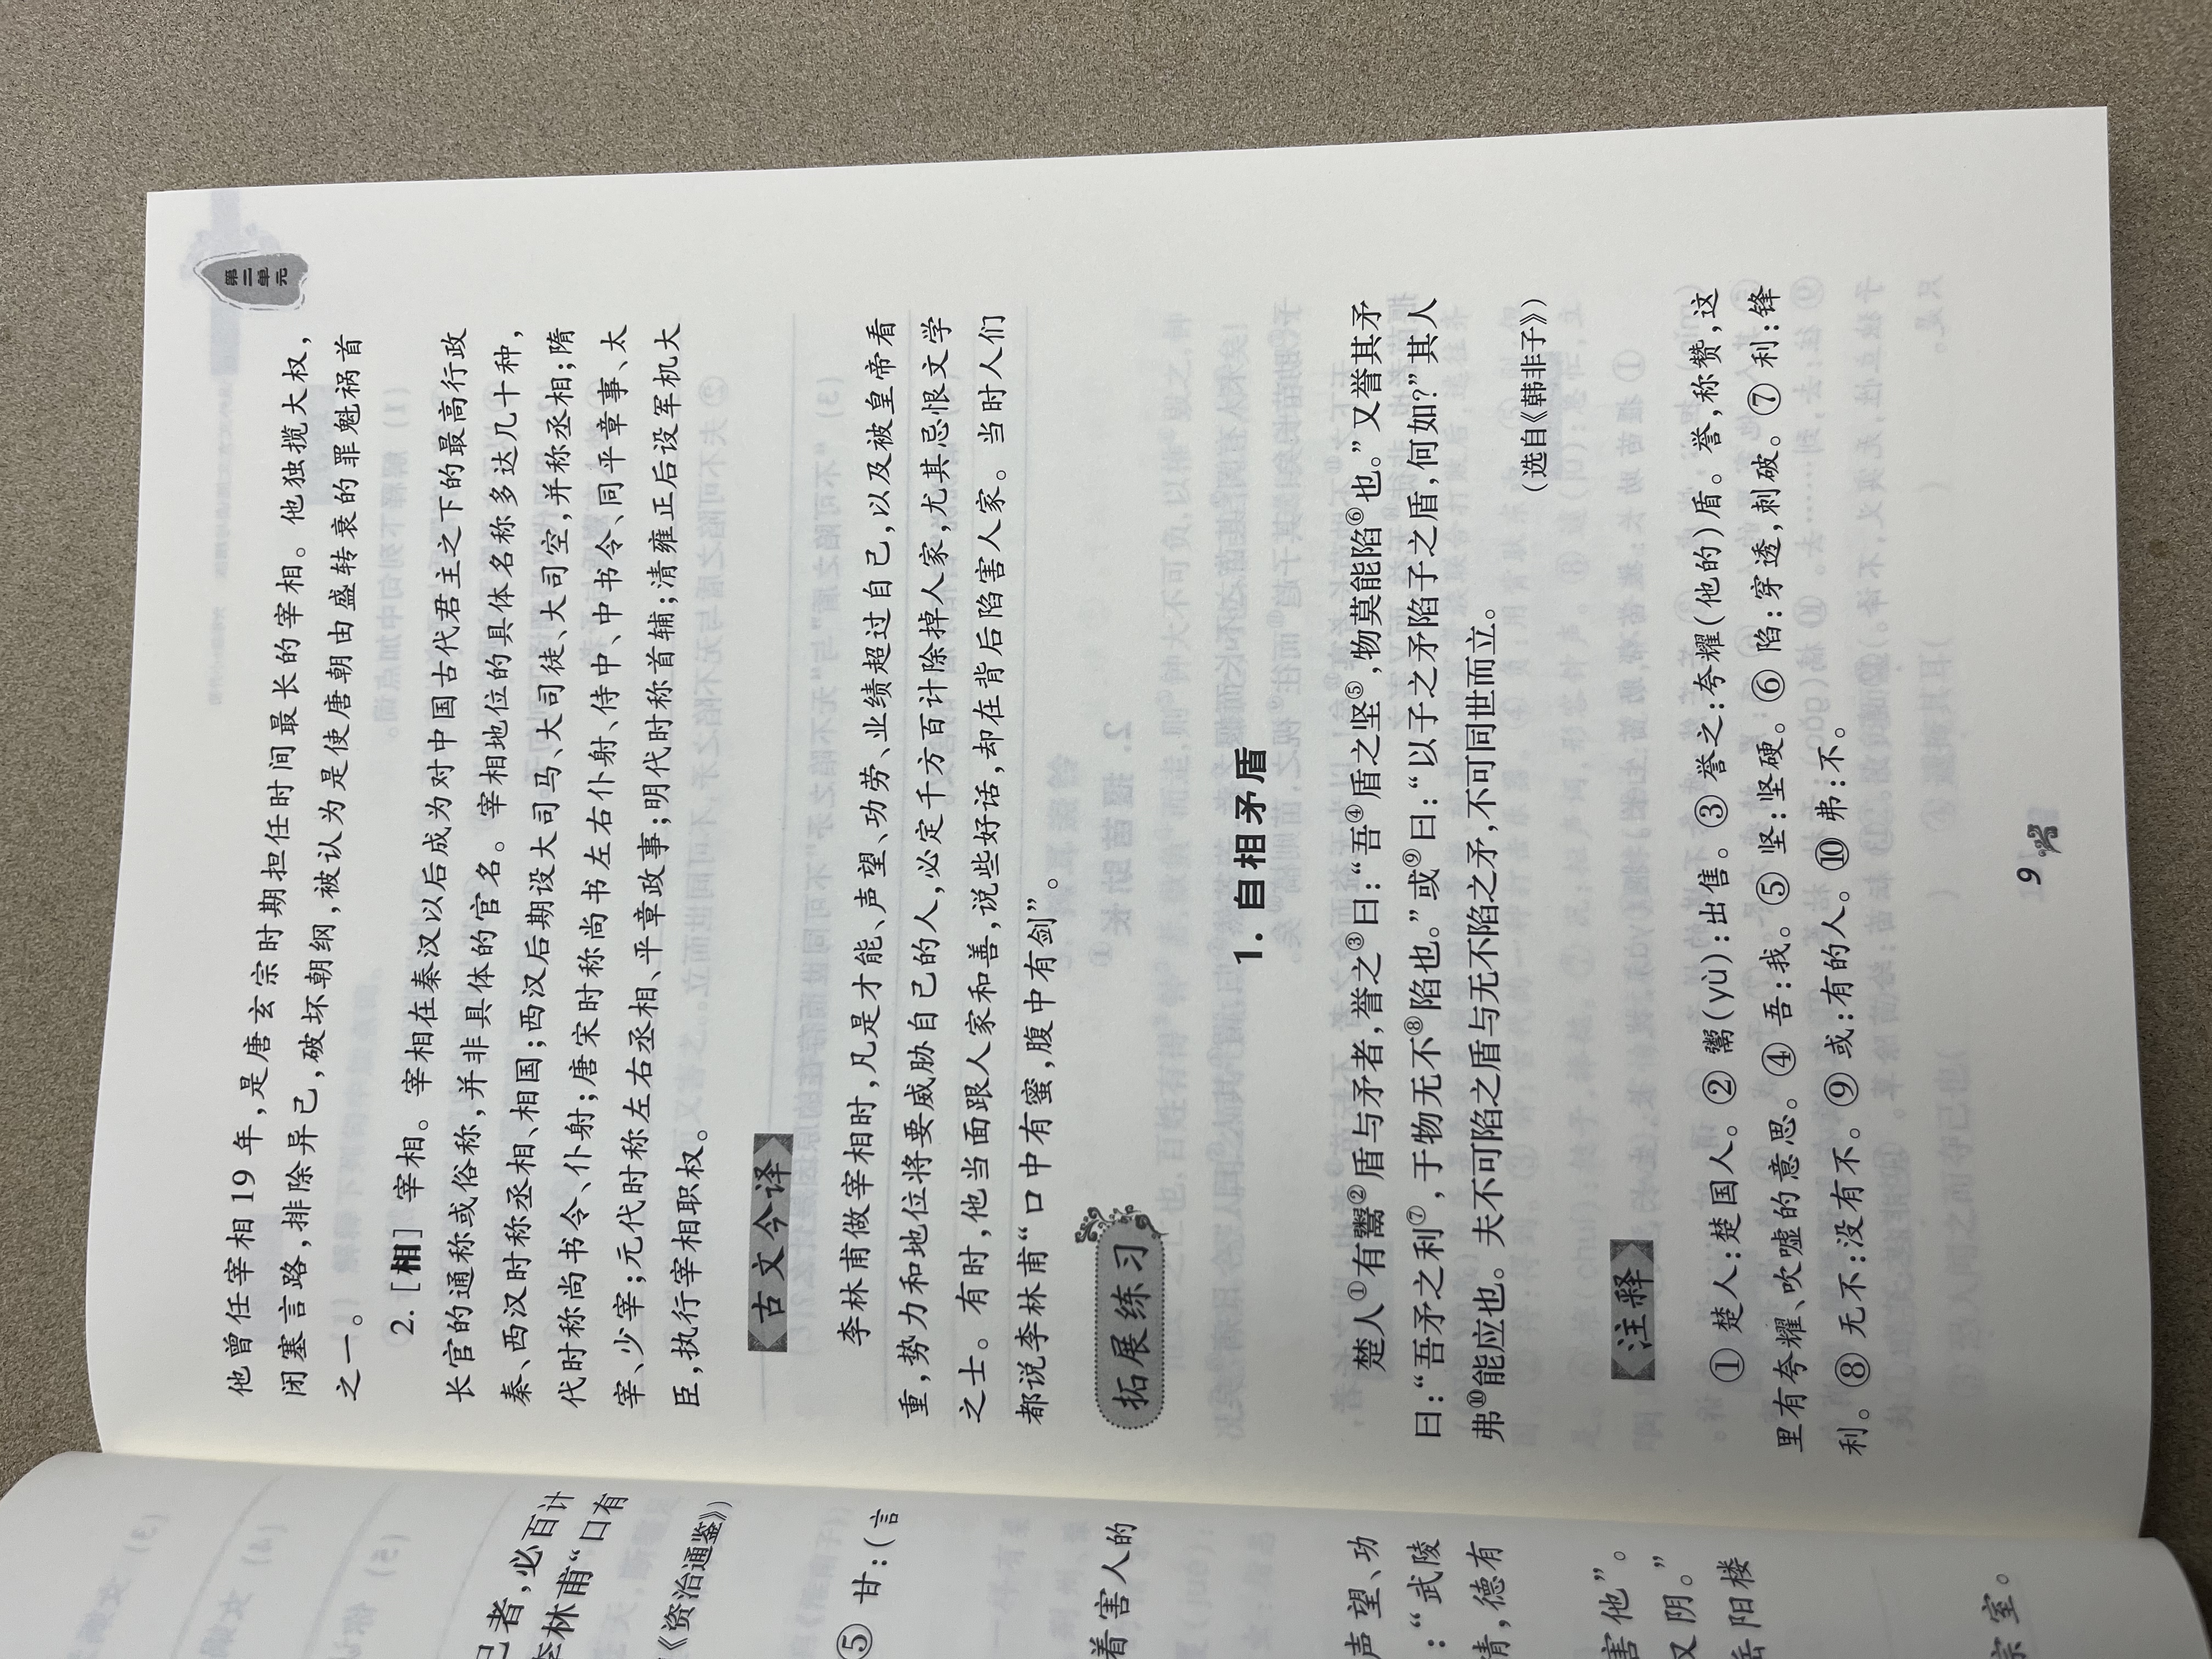 第二单元
他曾任宰相 19 年，是唐玄宗时期担任时间最长的宰相。他独揽大权，
闭塞言路，排除异己，破坏朝纲，被认为是使唐朝由盛转衰的罪魁祸首
之一。
2.［相］宰相。宰相在秦汉以后成为对中国古代君主之下的最高行政
长官的通称或俗称，并非具体的官名。宰相地位的具体名称多达几十种，
秦、西汉时称丞相、相国；西汉后期设大司马、大司徒、大司空，并称丞相；隋
代时称尚书令、仆射；唐宋时称尚书左右仆射、侍中、中书令、同平章事、太
宰、少宰；元代时称左右丞相、平章政事；明代时称首辅；清雍正后设军机大
臣，执行宰相职权。
古文今译
李林甫做宰相时，凡是才能、声望、功劳、业绩超过自己，以及被皇帝看
重，势力和地位将要威胁自己的人，必定千方百计除掉人家，尤其忌恨文学
之士。有时，他当面跟人家和善，说些好话，却在背后陷害人家。当时人们
都说李林甫“口中有蜜，腹中有剑”。
拓展练习
1. 自相矛盾
楚人①有鬻②盾与矛者，誉之③曰：“吾④盾之坚⑤，物莫能陷⑥也。”又誉其矛
曰：“吾矛之利⑦，于物无不⑧陷也。”或⑨曰：“以子之矛陷子之盾，何如？”其人
弗⑩能应也。夫不可陷之盾与无不陷之矛，不可同世而立。
（选自《韩非子》）
注释
① 楚人：楚国人。② 鬻(yù)：出售。③ 誉之：夸耀(他的)盾。誉，称赞，这
里有夸耀、吹嘘的意思。④ 吾：我。⑤ 坚：坚硬。⑥ 陷：穿透，刺破。⑦ 利：锋
利。⑧ 无不：没有不。⑨ 或：有的人。⑩ 弗：不。
9
己者，必百计
李林甫“口有
《资治通鉴》）
⑤ 甘：（言
着害人的
声望、功
：“武陵
情，德有
害他”。
又阴。”
岳阳楼
宗室。